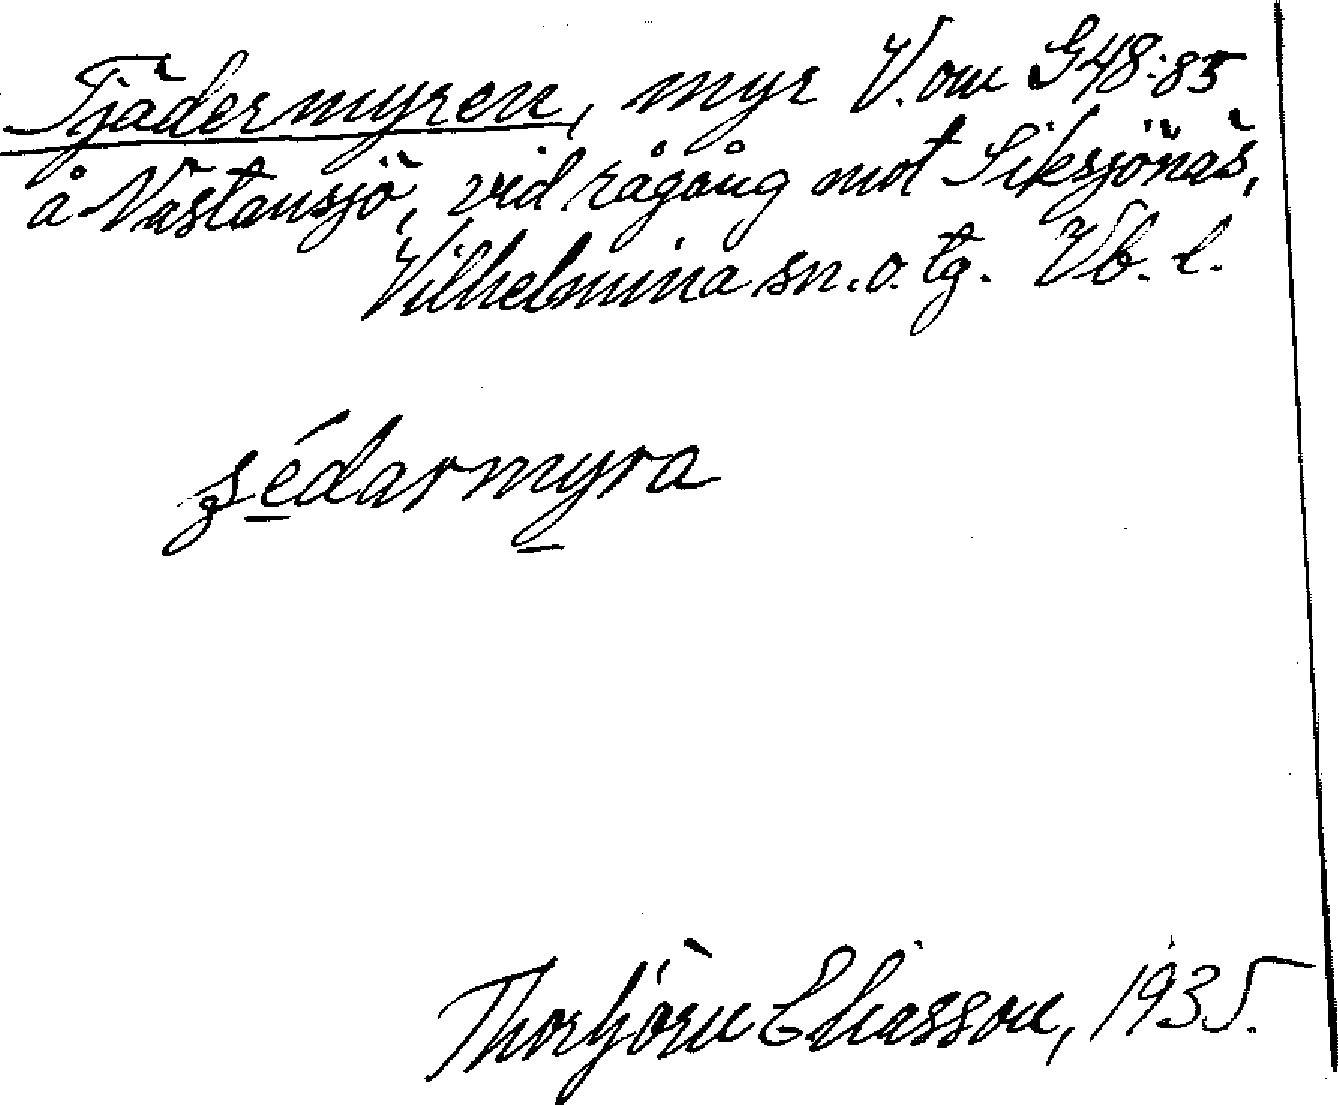 Tjädermyren, myr V. om G48:85
å Västansjö, vid rågång mot Siksjönäs,
Vilhelmina sn. o. tg. Vb. l.
sédarmyra
Thorbjörn Eliasson, 1935.